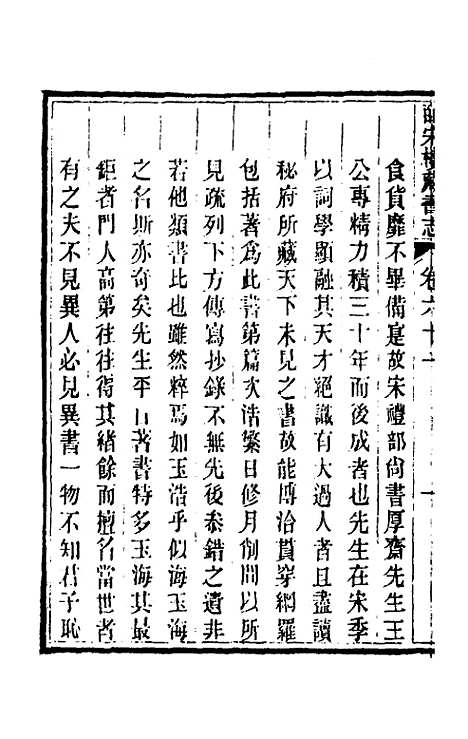 皕宋樓藏書志 卷六十一
食貨靡不畢備寔故宋禮部尚書厚齋先生王
公專精力積三十年而後成者也先生在宋季
以詞學顯融其天才絕識有大過人者且盡讀
秘府所藏天下未見之書故能博洽貫穿網羅
包括著爲此書第篇次浩繁日修月削間以所
見疏列下方傳寫抄錄不無先後叅錯之遺非
若他類書比也雖然粹焉如玉浩乎似海玉海
之名斯亦奇矣先生平白著書特多玉海其最
鉅者門人高第往往得其緒餘而擅名當世者
有之夫不見異人必見異書一物不知君子恥